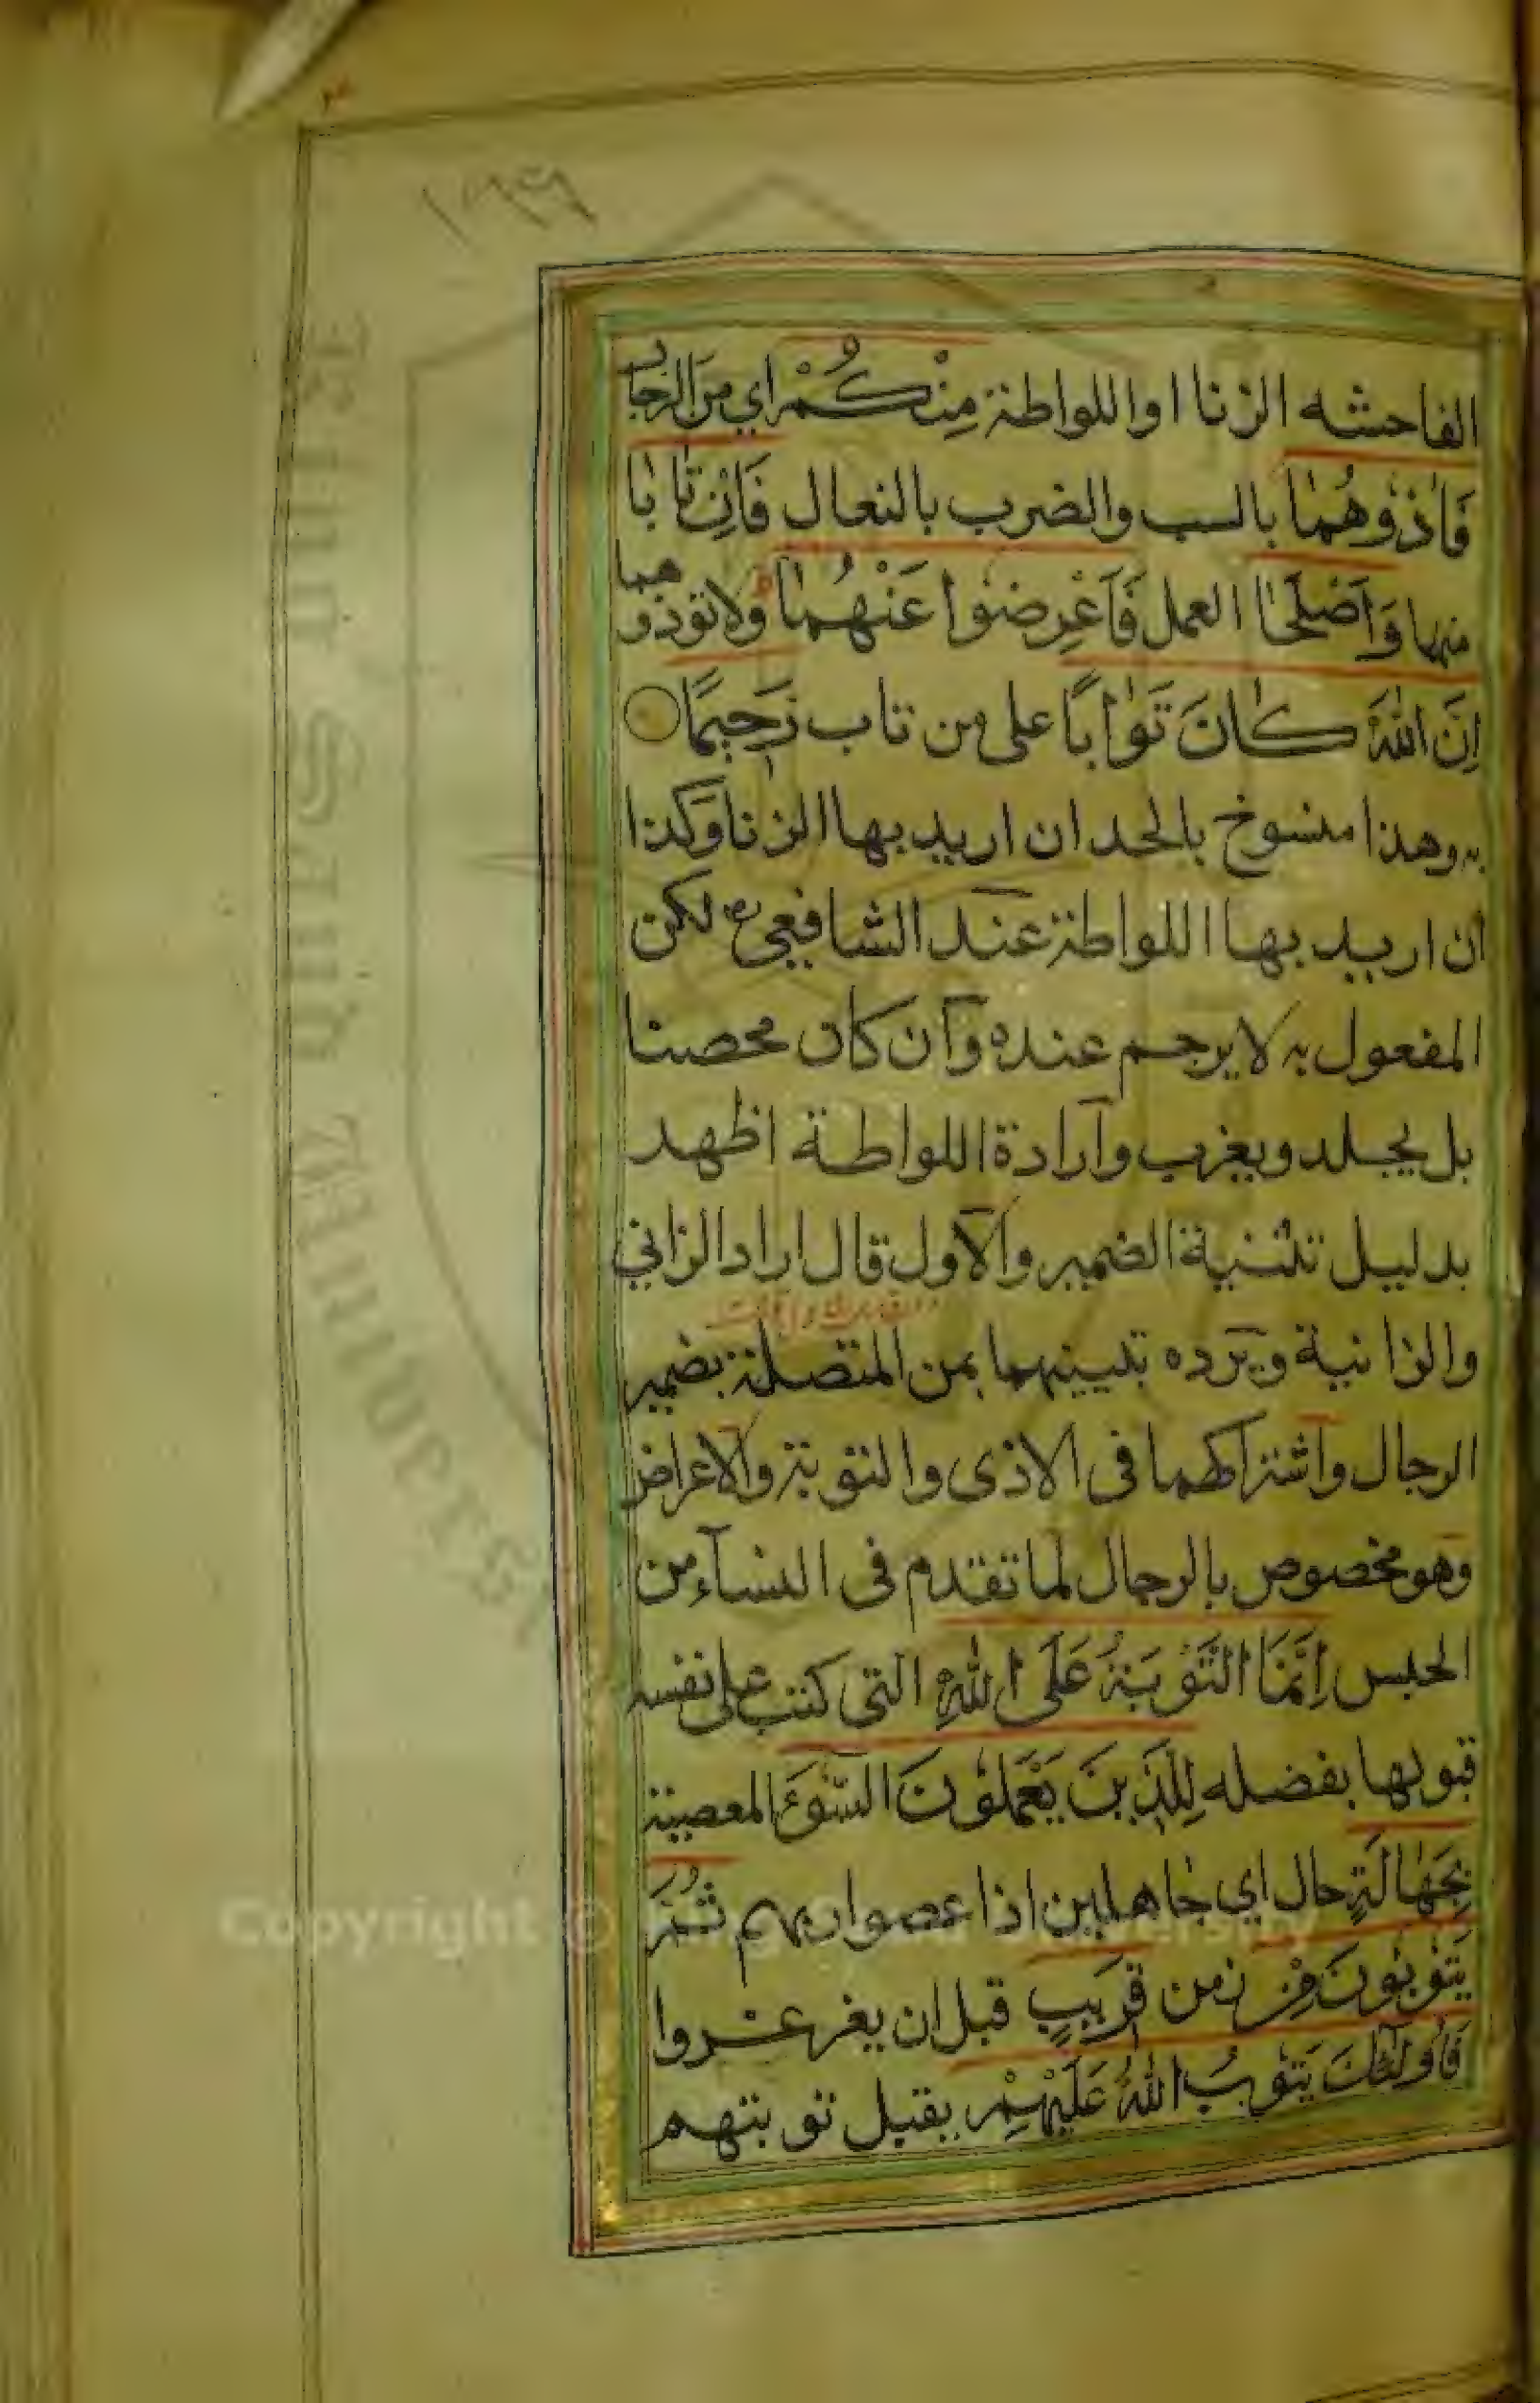 ١٣٩
الفاحشه الزنا او اللواطة مِنْكُمْ اي من الرجال
فَاٰذُوهُمٰا بالسب والضرب بالنعال فَاِنْ تٰابٰا
منها وَاَصْلَحٰا العمل فَاَعْرِضُوا عَنْهُمٰا ولا تؤذوهما
اِنَّ اللّٰهَ كٰانَ تَوّٰابًا على من تاب رَحِيمًا
به وهذا منسوخ بالحد ان اريد بها الزنا وكذا
ان اريد بها اللواطة عند الشافعي لكن
المفعول به لا يرجم عنده وان كان محصنا
بل يجلد ويغرب وارادة اللواطة اظهر
بدليل تثنية الضمير والاول قال اراد الزاني
والزانية ويرده تبيينهما بمن المتصلة بضمير
الرجال واشتراكهما فى الاذى والتوبة والاعراض
وهو مخصوص بالرجال لما تقدم فى النساء من
الحبس اِنَّمَا التَّوْبَةُ عَلَى اللّٰهِ التى كتب على نفسه
قبولها بفضله لِلَّذِينَ يَعْمَلُونَ السُّوءَ المعصية
بِجَهٰالَةٍ حال اي جاهلين اذا عصوا ربهم ثُمَّ
يَتُوبُونَ مِنْ زمن قَرِيبٍ قبل ان يغرغروا
فَاُولٰئِكَ يَتُوبُ اللّٰهُ عَلَيْهِمْ يقبل توبتهم
King Saud University
Copyright © King Saud University